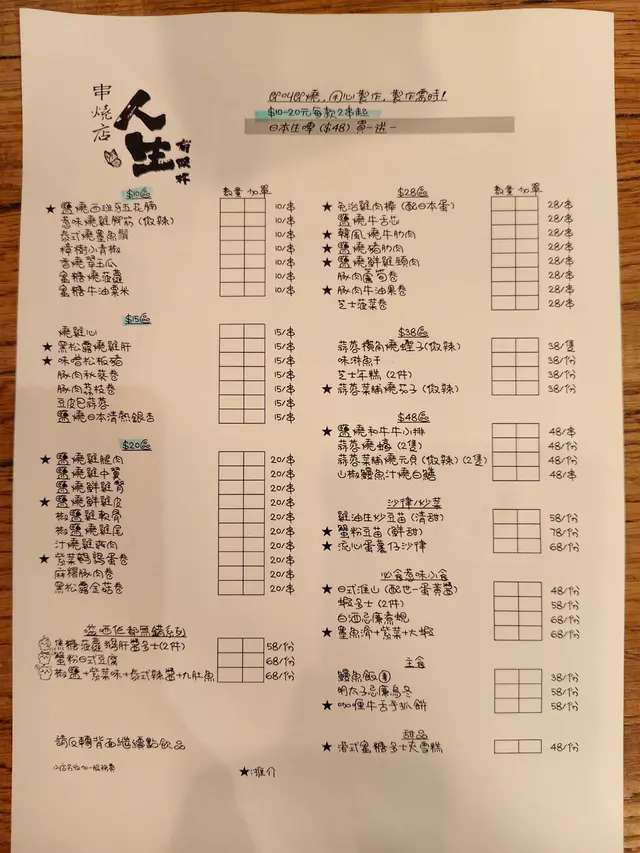 串燒店
人生
有限杯
即叫即燒，用心製作，製作需時！
$10-20元每款2串起
日本生啤（$48）買一送一
$10區
數量 加單
★ 鹽燒西班牙五花腩 10/串
惹味燒雞腳筋（微辣） 10/串
泰式燒墨魚鬚 10/串
樟樹小青椒 10/串
香燒翠玉瓜 10/串
蜜糖燒菠蘿 10/串
蜜糖牛油粟米 10/串
$15區
燒雞心 15/串
★ 黑松露燒雞肝 15/串
★ 味噌松板豬 15/串
豚肉秋葵卷 15/串
豚肉荔枝卷 15/串
豆皮包蒜蓉 15/串
鹽燒日本清熱銀杏 15/串
$20區
★ 鹽燒雞腿肉 20/串
鹽燒雞中翼 20/串
鹽燒鮮雞腎 20/串
★ 鹽燒鮮雞皮 20/串
椒鹽雞軟骨 20/串
椒鹽燒雞尾 20/串
汁燒雞肉 20/串
★ 紫菜鵪鶉蛋卷 20/串
麻糬豚肉卷 20/串
黑松露金菇卷 20/串
系列
焦糖菠蘿鵝肝醬多士(2件) 58/份
蟹粉日式豆腐 68/份
椒鹽+紫菜味+泰式辣醬+九肚魚 68/份
請反轉背面繼續點飲品
小店另收加一服務費
★:推介
$28區
數量 加單
★ 免治雞肉棒（配日本蛋） 28/串
鹽燒牛舌芯 28/串
★ 韓風燒牛肋肉 28/串
★ 鹽燒豬肋肉 28/串
★ 鹽燒鮮雞頸肉 28/串
豚肉蘆筍卷 28/串
★ 豚肉牛油果卷 28/串
芝士菠菜卷 28/串
$38區
蒜蓉燒蟶子(微辣) 38/隻
味淋魚干 38/份
芝士年糕（2件） 38/份
★ 蒜蓉菜脯燒茄子（微辣） 38/份
$48區
★ 鹽燒和牛牛小排 48/串
蒜蓉燒蠔（2隻） 48/份
蒜蓉菜脯燒元貝（微辣）(2隻) 48/份
山椒鰻魚汁燒白鱔 48/串
沙律/炒菜
雞油生炒豆苗（清甜） 58/份
★ 蟹粉豆苗（鮮甜） 78/份
★ 流心蛋薯仔沙律 68/份
必食惹味小食
★ 日式淮山（配世一蛋黃醬） 48/份
蝦多士（2件） 58/份
白酒忌廉煮蜆 68/份
★ 墨魚滑+紫菜+大蝦 68/份
主食
鰻魚飯 38/份
明太子忌廉烏冬 58/份
★ 咖喱牛舌手抓餅 58/份
甜品
★ 港式蜜糖多士夾雪糕 48/份